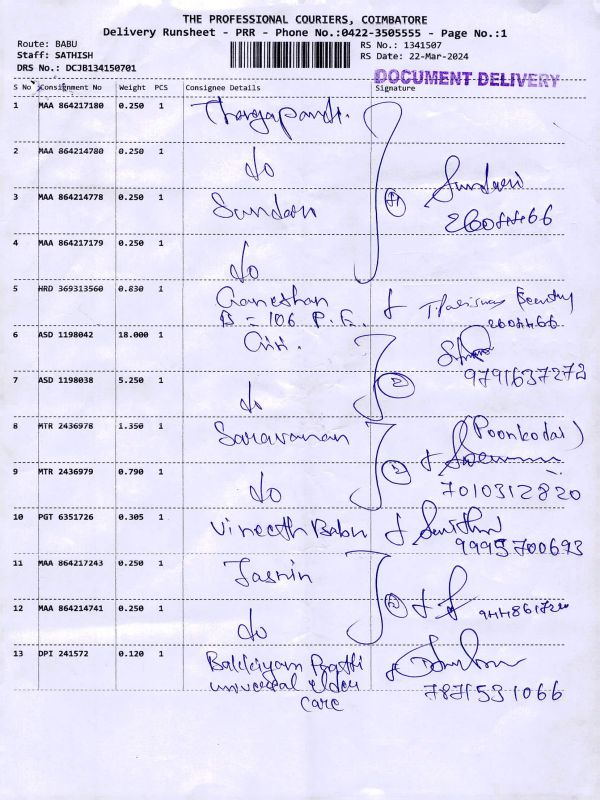 THE PROFESSIONAL COURIERS, COIMBATORE
Delivery Runsheet - PRR - Phone No.:0422-3505555 - Page No.:1
Route: BABU
Staff: SATHISH
DRS No.: DCJB134150701
RS No.: 1341507
RS Date: 22-Mar-2024
DOCUMENT DELIVERY
S No Consignment No Weight PCS Consignee Details Signature
1 MAA 864217180 0.250 1
2 MAA 864214780 0.250 1 do
3 MAA 864214778 0.250 1 Sundari Sundari
2604466
4 MAA 864217179 0.250 1 do
5 HRD 369313560 0.830 1 Ganeshan Security
B = 106 P.E. 2604466
6 ASD 1198042 18.000 1 Giri.
9791637272
7 ASD 1198038 5.250 1 do 2
8 MTR 2436978 1.350 1 Saravanan (Poonkodai)
9 MTR 2436979 0.790 1 do 2
7010312820
10 PGT 6351726 0.305 1 Vineeth Babu
9995700693
11 MAA 864217243 0.250 1 Jasmin
12 MAA 864214741 0.250 1 do 2
13 DPI 241572 0.120 1 Bakkiyam
universal elder 7871531066
care